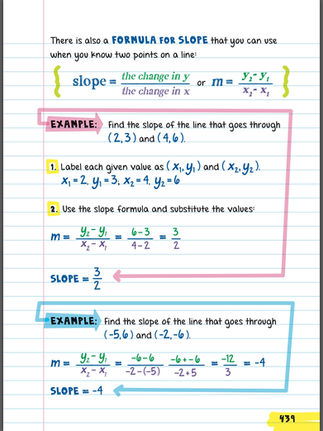 There is also a FORMULA FOR SLOPE that you can use
when you know two points on a line:
slope = the change in y / the change in x or m = y₂ - y₁ / x₂ - x₁
EXAMPLE: Find the slope of the line that goes through
(2, 3) and (4, 6).
1. Label each given value as (x₁, y₁) and (x₂, y₂).
x₁ = 2, y₁ = 3, x₂ = 4, y₂ = 6
2. Use the slope formula and substitute the values:
m = y₂ - y₁ / x₂ - x₁ = 6 - 3 / 4 - 2 = 3 / 2
SLOPE = 3 / 2
EXAMPLE: Find the slope of the line that goes through
(-5, 6) and (-2, -6).
m = y₂ - y₁ / x₂ - x₁ = -6 - 6 / -2 - (-5) -6 + -6 / -2 + 5 = -12 / 3 = -4
SLOPE = -4
439